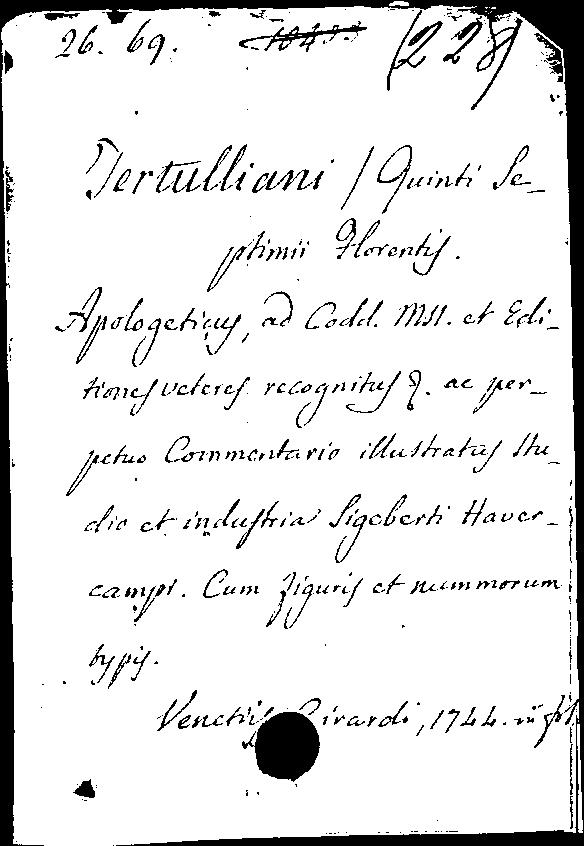 26. 69. 10433 (228)
Tertulliani / Quinti Se-
ptimii Florentis.
Apologeticus, ad Codd. Mss. et Edi-
tiones veteres recognitus &. ac per-
petuo Commentario illustratus Stu-
dio et industria Sigeberti Haver-
campi. Cum Figuris et nummorum
typis.
Venetiis Girardi, 1744. in